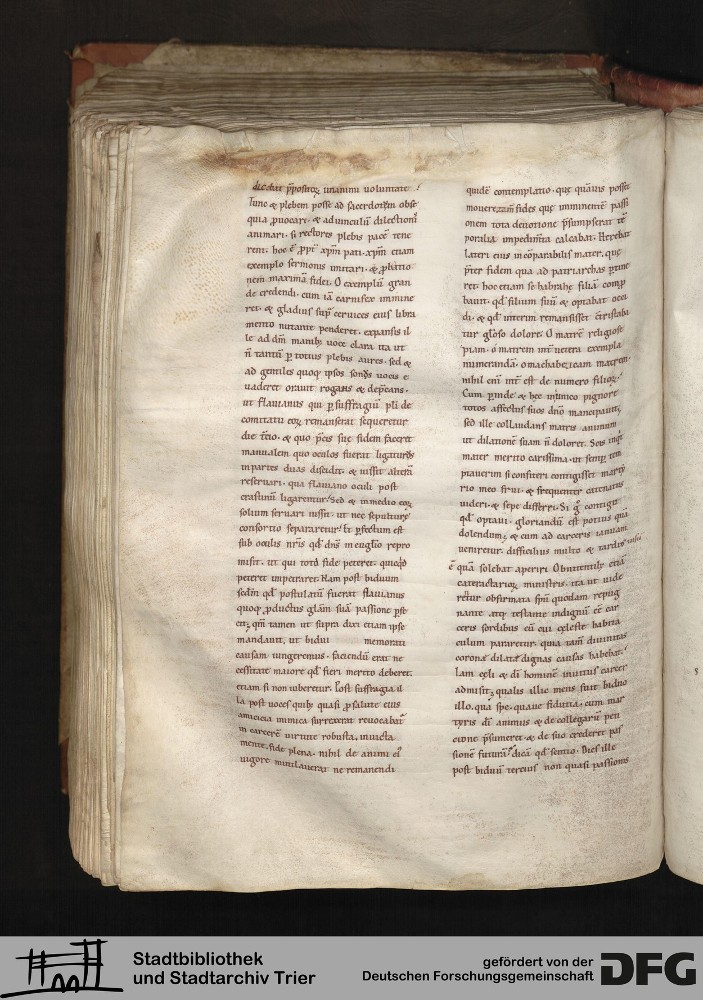 dicebat p̄positoꝝ unanimi uoluntate.
Iunc & plebem posse ad sacerdotem obse
quia ꝓuocari. & adunculū dilection̄
animari. si rectores plebis pacē tene
rent. hoc ē ꝓpt̄ xp̄m pati. xp̄m etiam
exemplo sermonis imitari. & p̄latio
nem maximā fidei. O exemplū gran
de credendi. cum iā carnifex immine
ret. & gladius suꝑ ceruices eius libra
mento nutante penderet. expansis il
le ad dm̄ manibꝫ uoce clara ita ut
n̄ tantū ꝑ totius plebis aures. sed &
ad gentiles quoqꝫ ipsos sonus uocis e
uaderet orauit rogans & dep̄cans.
ut flauianus qui ꝑ suffragiū plebis de
comitatu eoꝝ remanserat sequeretur
die t̄cio. & quo p̄cis suę fidem faceret
manualem quo oculos fuerat ligaturus
in partes duas discidit. & iussit alterā
reseruari. qua flauiano oculi post
crastinū ligarentur. Sed & in medio eoꝝ
solium seruari iussit. ut nec sepulturę
consortio separaretur. Et ꝑfectum est
sub oculis nr̄is qd̄ dn̄s in euglīo repro
misit. ut qui tota fide peteret. quicqd̄
peteret impetraret. Nam post biduum
sedm̄ qd̄ postulatū fuerat flauianus
quoqꝫ ꝓductus glām suā passione ꝑfe
cit. qm̄ tamen ut supra dixi etiam ipse
mandauit. ut bidui memorati
causam iungeremus. faciendū erat ne
cessitate maiore qd̄ fieri merito deberet.
etiam si non iuberetur. Post suffragia il
la post uoces quibꝫ quasi ꝓ salute eius
amicicia inimica surrexerat reuocabat̄
in carcerē uirtute robusta. inuicta
mente. fide plena. nihil de animi ei᷒
uigore mutilauerat ne remanendi
quidē contemplatio. quę quāuis posset
mouere. tam̄ fides quę imminentē passi
onem tota deuotione p̄sumpserat tē
poralia impedimta calcabat. Herebat
lateri eius incōparabilis mater. quę
p̄ter fidem qua ad patriarchas ꝑtine
ret. hoc etiam se habrahę filiā comꝓ
bauit. qd̄ filium suū & optabat occi
di. & qd̄ interim remansisset c̄tristaba
tur gl̄oso dolore. O matrē religiose
piam. o matrem int̄ uetera exempla
numerandā. o machabeicam matrem.
nihil eni int̄ est de numero filioꝝ.
Cum ꝑinde & hec in unico pignore
totos affectus suos dn̄o mancipauit.
sed ille collaudans matris animum
ut dilatione suam n̄ doloret. Scis inqt̄
mater merito carissima. ut semꝑ tem
ptauerim si confiteri contigisset marty
rio meo frui. & frequenter catenatus
uideri. & sepe differri. Si g̊ contigit
qd̄ optaui. gloriandū est potius quā
dolendum. & cum ad carceris ianuam
ueniretur. difficilius multo & tardius
quā solebat aperiri Obnitentibꝫ etiā
cataractarioꝝ ministris. ita ut uide
retur obfirmata spm̄ quodam repug
nante. atqꝫ testante indignū eē car
ceris sordibus eū cui cęleste habita
culum pararetur. quia tam̄ diuinitas
coronę dilatę dignas causas habebat.
Iam cęli & di hominē inuitus carcer
admisit. qualis illic mens fuit biduo
illo. qua spe. quaue fiducia. cum mar
tyris di animus & de collegarū peti
cione p̄sumeret. & de suo crederet pas
sionē futurā. dicā qd̄ sentio. Dies ille
post biduū tercius non quasi passionis
Stadtbibliothek
und Stadtarchiv Trier
gefördert von der
Deutschen Forschungsgemeinschaft
DFG